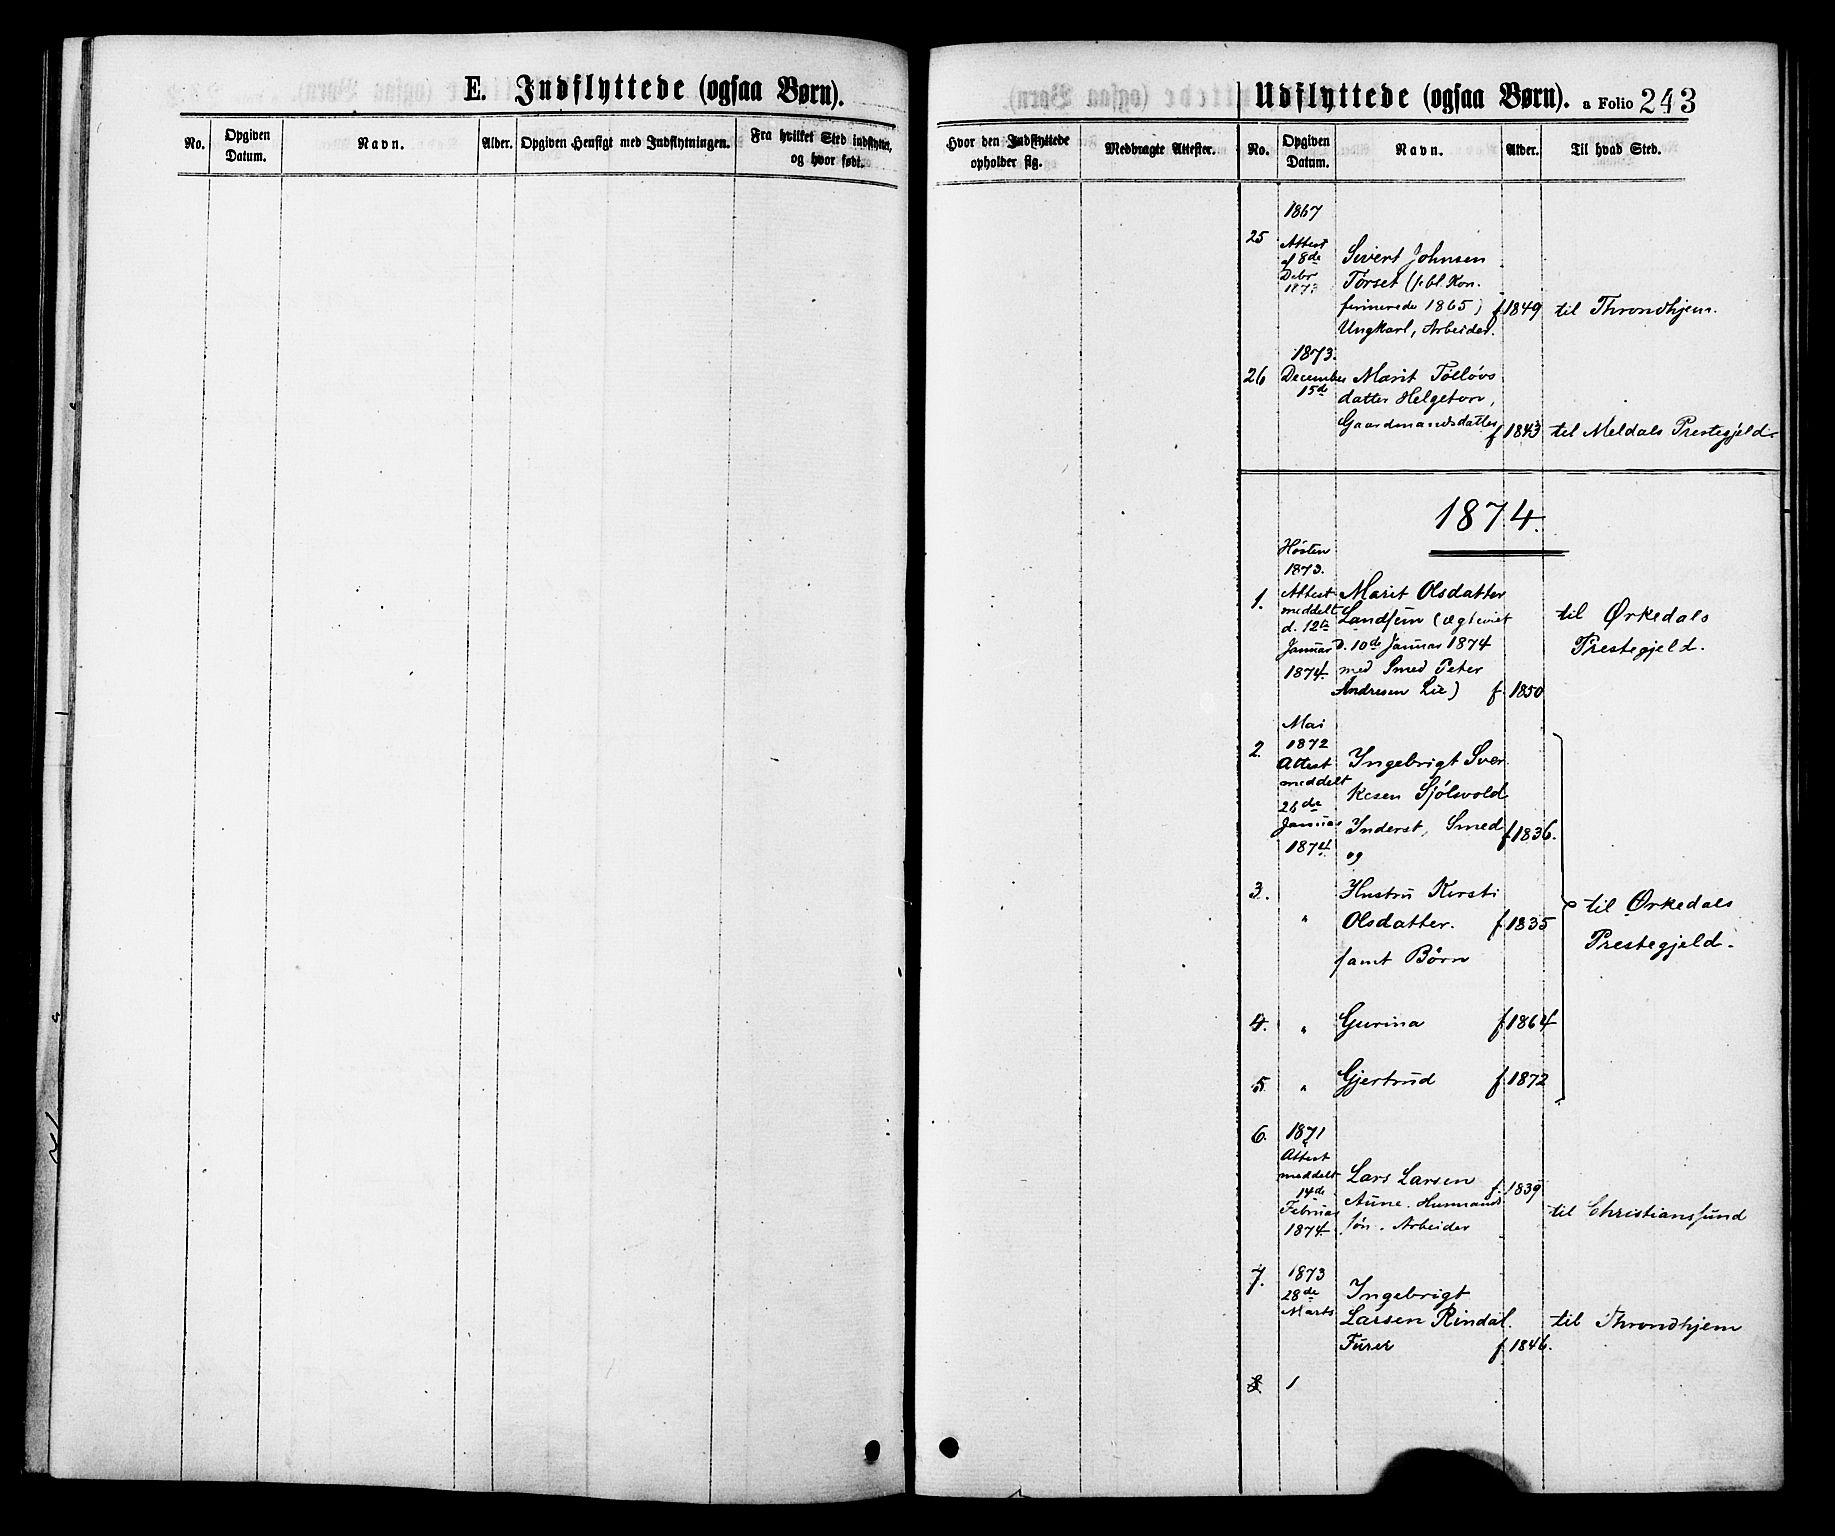 E. Indflyttede (ogsaa Børn).
No.
Opgiven Datum.
Navn.
Alder.
Opgiven Hensigt med Indflytningen.
Fra hvilket Sted indflyttet, og hvor født.
Udflyttede (ogsaa Børn). a Folio 243
Hvor den Indflyttede opholder sig.
Medbragte Attester.
No.
Opgiven Datum.
Navn.
Alder.
Til hvad Sted.
1867
25 Attest Sivert Johnsen
af 8de Debr 1873 Törset (s. bl. Kon.
firmerede 1865) f. 1849 til Throndhjem.
Ungkarl, Arbeider.
1873.
26 December Marit Tölløvs
15de datter Helgeton,
Gaardmandsdatter f 1843 til Meldals Prestegjeld.
1874.
Hösten
1873.
1. Attest Marit Olsdatter
meddelt Landsem (Ægteviet til Ørkedals
d. 12te
Januar D. 10de Januar 1874 Prestegjeld.
1874. med Smed Peter
Andresen Lie) f. 1850
Mai
1872
2. Attest Ingebrigt Sver
meddelt kesen Sjölsvold
26de
Januar Inderst, Smed f 1836.
1874. og
3. " Hustru Kirsti til Ørkedals
Olsdatter. f. 1835 Prestegjeld.
samt Börn
4. " Gurina f. 1864
5. " Gjertrud f. 1872
6. 1871
Attest
meddelt Lars Larsen f. 1839
14de Aune. Husmands
Februar til Christianssund
1874. sön. Arbeider
7. 1873
28de Ingebrigt
Marts Larsen Rindal. til Throndhjem
Furer f. 1846.
8 1